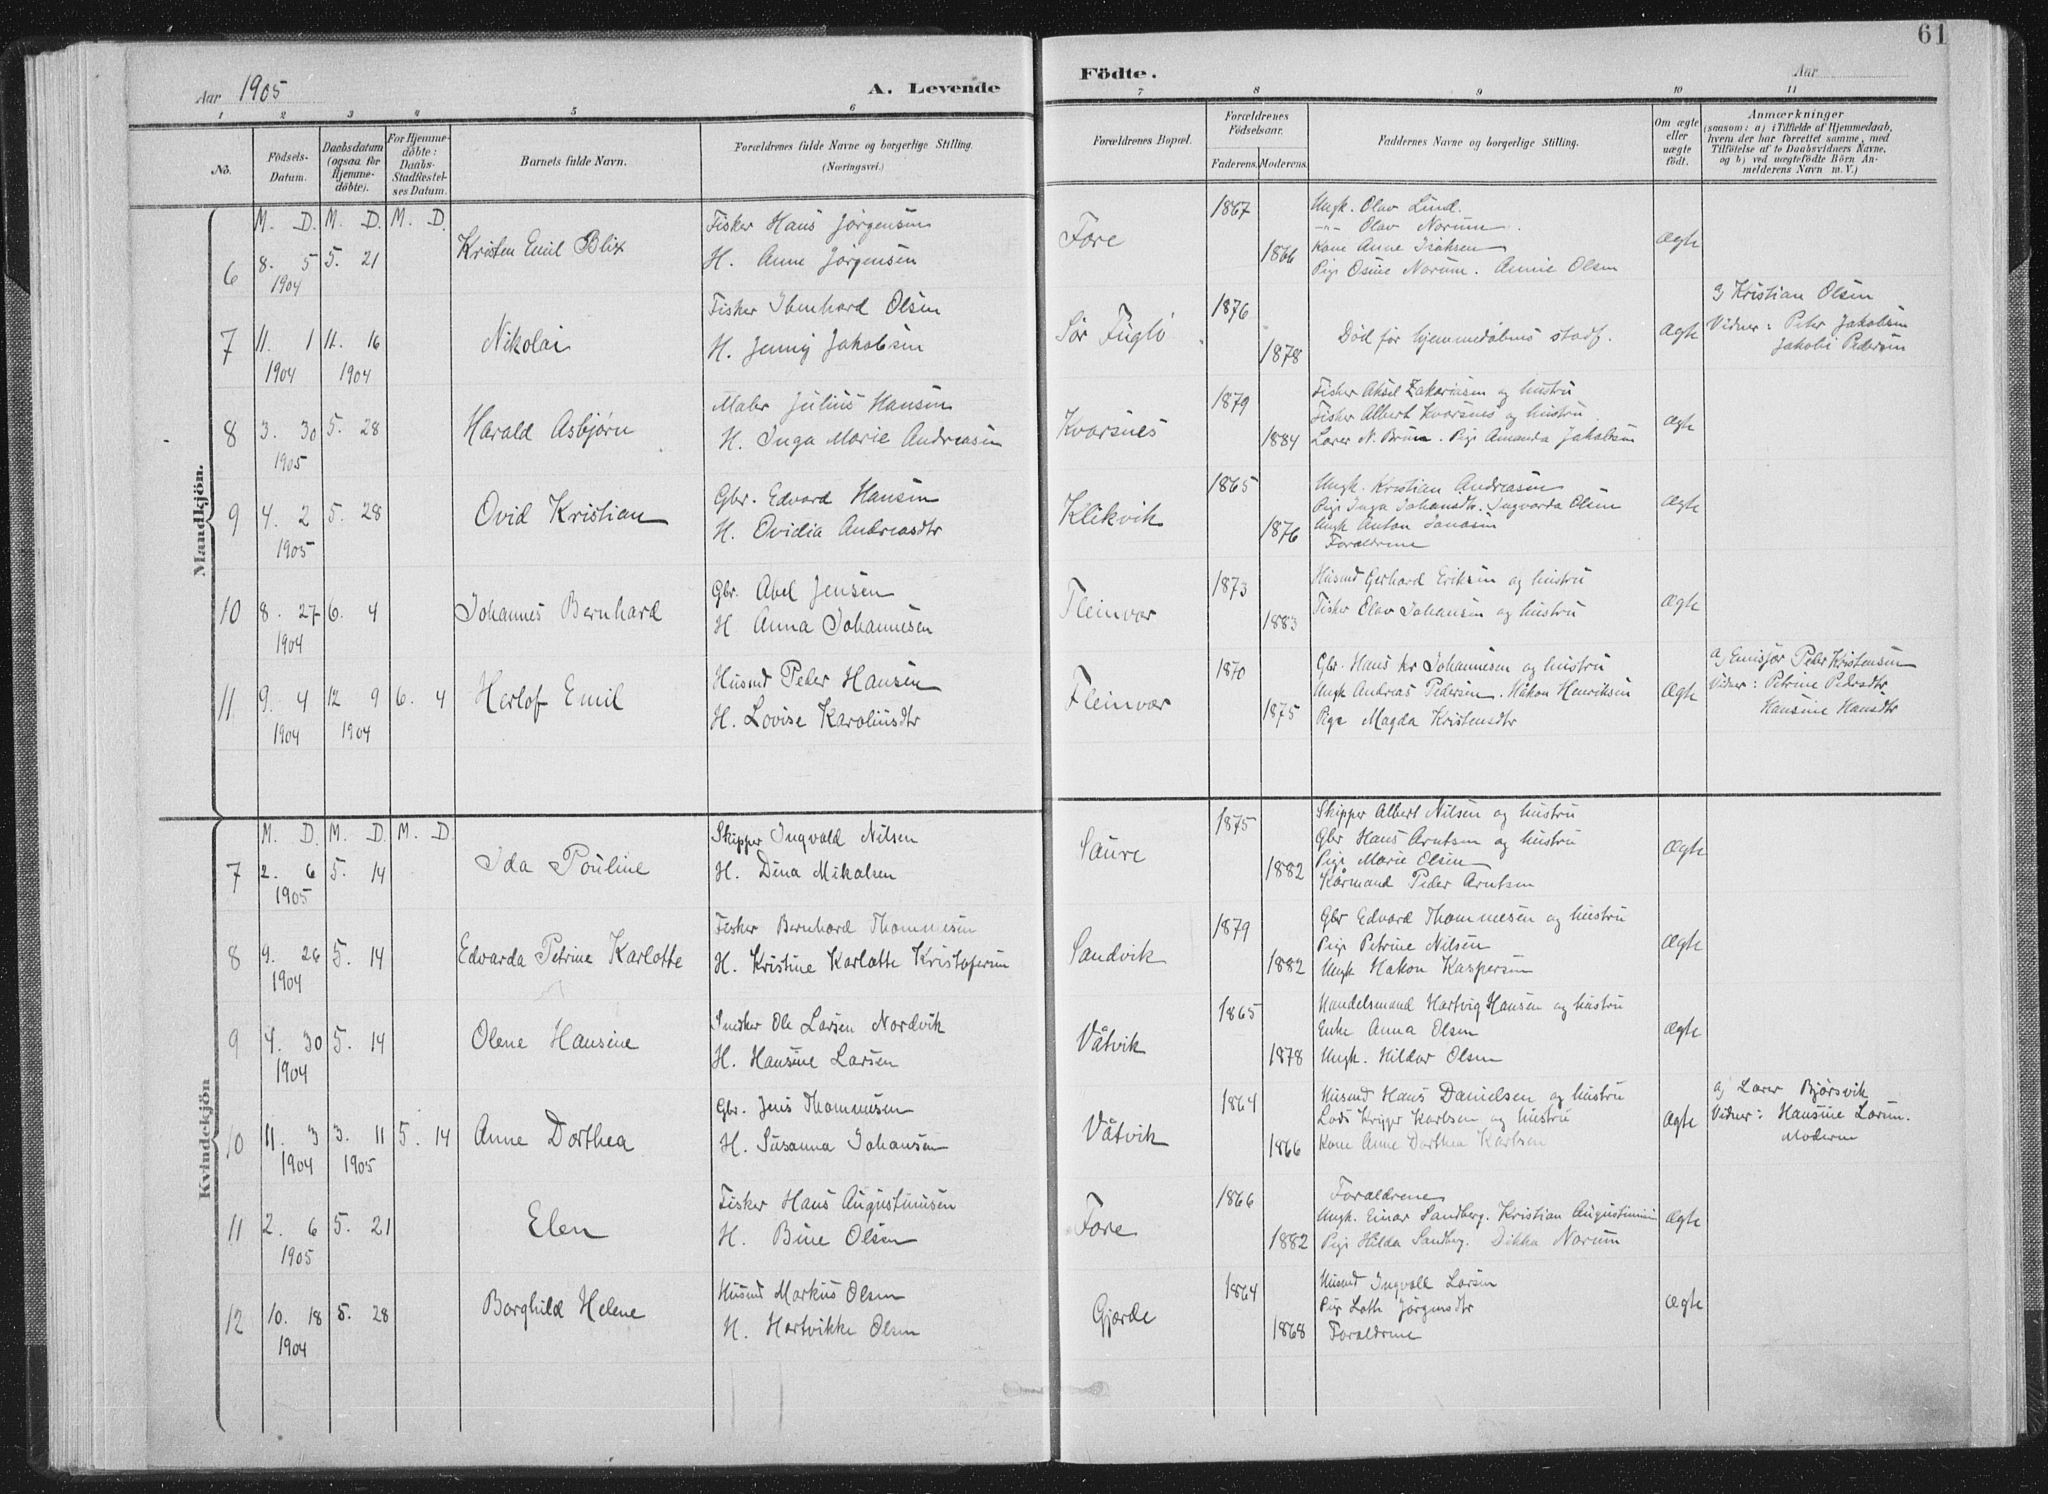 61
Aar 1905 A. Levende Födte. Aar
1 2 3 4 5 6 7 8 9 10 11
No. Födsels-Datum. Daabsdatum (ogsaa for Hjemmedöbte). For Hjemmedöbte: Daabs-Stadfæstelses Datum. Barnets fulde Navn. Forældrenes fulde Navne og borgerlige Stilling. (Næringsvei.) Forældrenes Bopæl. Forældrenes Födselsaar. Faderens. Moderens. Faddernes Navne og borgerlige Stilling. Om ægte eller uægte födt. Anmærkninger (saasom: a) i Tilfælde af Hjemmedaab, hvem der har forrettet samme, med Tilföielse af to Daabsvidners Navne, og b) ved uægtefödte Börn Anmelderens Navn m. V.)
Mandkjön.
M. D. M. D. M. D.
6 8. 5 1904 5. 21 Kristen Emil Blix
Fisker Hans Jørgensen
H. Anne Jørgensen
Fore 1867 1866
Ungk. Olav Lind.
-"- Olav Norum.
Kone Anne Isaksen
Pige Osine Norum. Annie Olsen
Ægte
7 11. 1 1904 11. 16 1904 Nikolai
Fisker Ibenhard Olsen
H. Jenny Jakobsen
Sør Fuglø 1876 1878
Død før hjemmedåbens stadf.
Ægte
a) Kristian Olsen
Vidner: Peter Jakobsen
Jakobi Pedersen
8 3. 30 1905 5. 28 Harald Asbjørn
Maler Julius Hansen
H. Inga Marie Andreasen
Kvarsnes 1879 1884
Fisker Aksel Zakariasen og hustru
Fisker Albert Kvarsnes og hustru
Lærer N. Brun. Pige Amanda Jakobsen
Ægte
9 4. 2 1905 5. 28 Ovid Kristian
Gbr. Edvard Hansen
H. Ovidia Andreasdtr
Klikvik 1865 1876
Ungk. Kristian Andreasen
Pige Inga Johansdtr. Ingvarda Olsen
Ungk Anton Jonasen
Forældrene
Ægte
10 8. 27 1904 6. 4 Johannes Bernhard
Gbr. Abel Jensen
H Anna Johannesen
Fleinvær 1873 1883
Husmd Gerhard Eriksen og hustru
Fisker Olav Johansen og hustru
Ægte
11 9. 4 1904 12 9 1904 6. 4 Herlof Emil
Husmd Peder Hansen
H. Lovise Karoliusdtr
Fleinvær 1870 1875
Gbr. Hans Kr Johannesen og hustru
Ungk Andreas Pedersen. Håkon Henriksen
Pige Magda Kristensdtr
Ægte
a) Emissør Peter Kristensen
Vidner: Petrine Pedersdtr
Hansine Hansdtr
Kvindekjön
M. D. M. D. M. D.
7 2. 6 1905 5. 14 Ida Pouline
Skipper Ingvald Nilsen
H. Dina Mikalsen
Saure 1875 1882
Skipper Albert Nilsen og hustru
Gbr Hans Arntsen og hustru
Pige Marie Olsen
Kårmand Peder Arntsen
Ægte
8 9. 26 1904 5. 14 Edvarda Petrine Karlotte
Fisker Bernhard Thommesen
H. Kristine Karlotte Kristofersen
Sandvik 1879 1882
Gbr Edvard Thommesen og hustru
Pige Petrine Nilsen
Ungk Håkon Kaspersen
Ægte
9 4. 30 1904 5. 14 Olene Hansine
Snedker Ole Larsen Nordvik
H. Hansine Larsen
Våtvik 1865 1878
Handelsmand Hartvig Hansen og hustru
Enke Anna Olsen
Ungk. Hildor Olsen
Ægte
10 11. 3 1904 3. 11 1905 5. 14 Anne Dorthea
Gbr. Jens Thommesen
H. Susanna Johansen
Våtvik 1864 1866
Husmd Hans Danielsen og hustru
Lods Krøger Karlsen og hustru
Kone Anne Dorthea Karlsen
Ægte
a) Lærer Bjørsvik
Vidner: Hansine Larsen.
Moderen
11 2. 6 1905 5. 21 Elen
Fisker Hans Augustinusen
H. Bine Olsen
Fore 1866 1882
Forældrene
Ungk. Einar Sandberg. Kristian Augustinusen
Pige Hilda Sandberg. Dikka Norum
Ægte
12 10. 18 1904 5. 28 Borghild Helene
Husmd Markus Olsen
H. Hartvikke Olsen
Gjærde 1864 1868
Husmd Ingvald Larsen
Pige Loth Jørgensdtr
Forældrene
Ægte